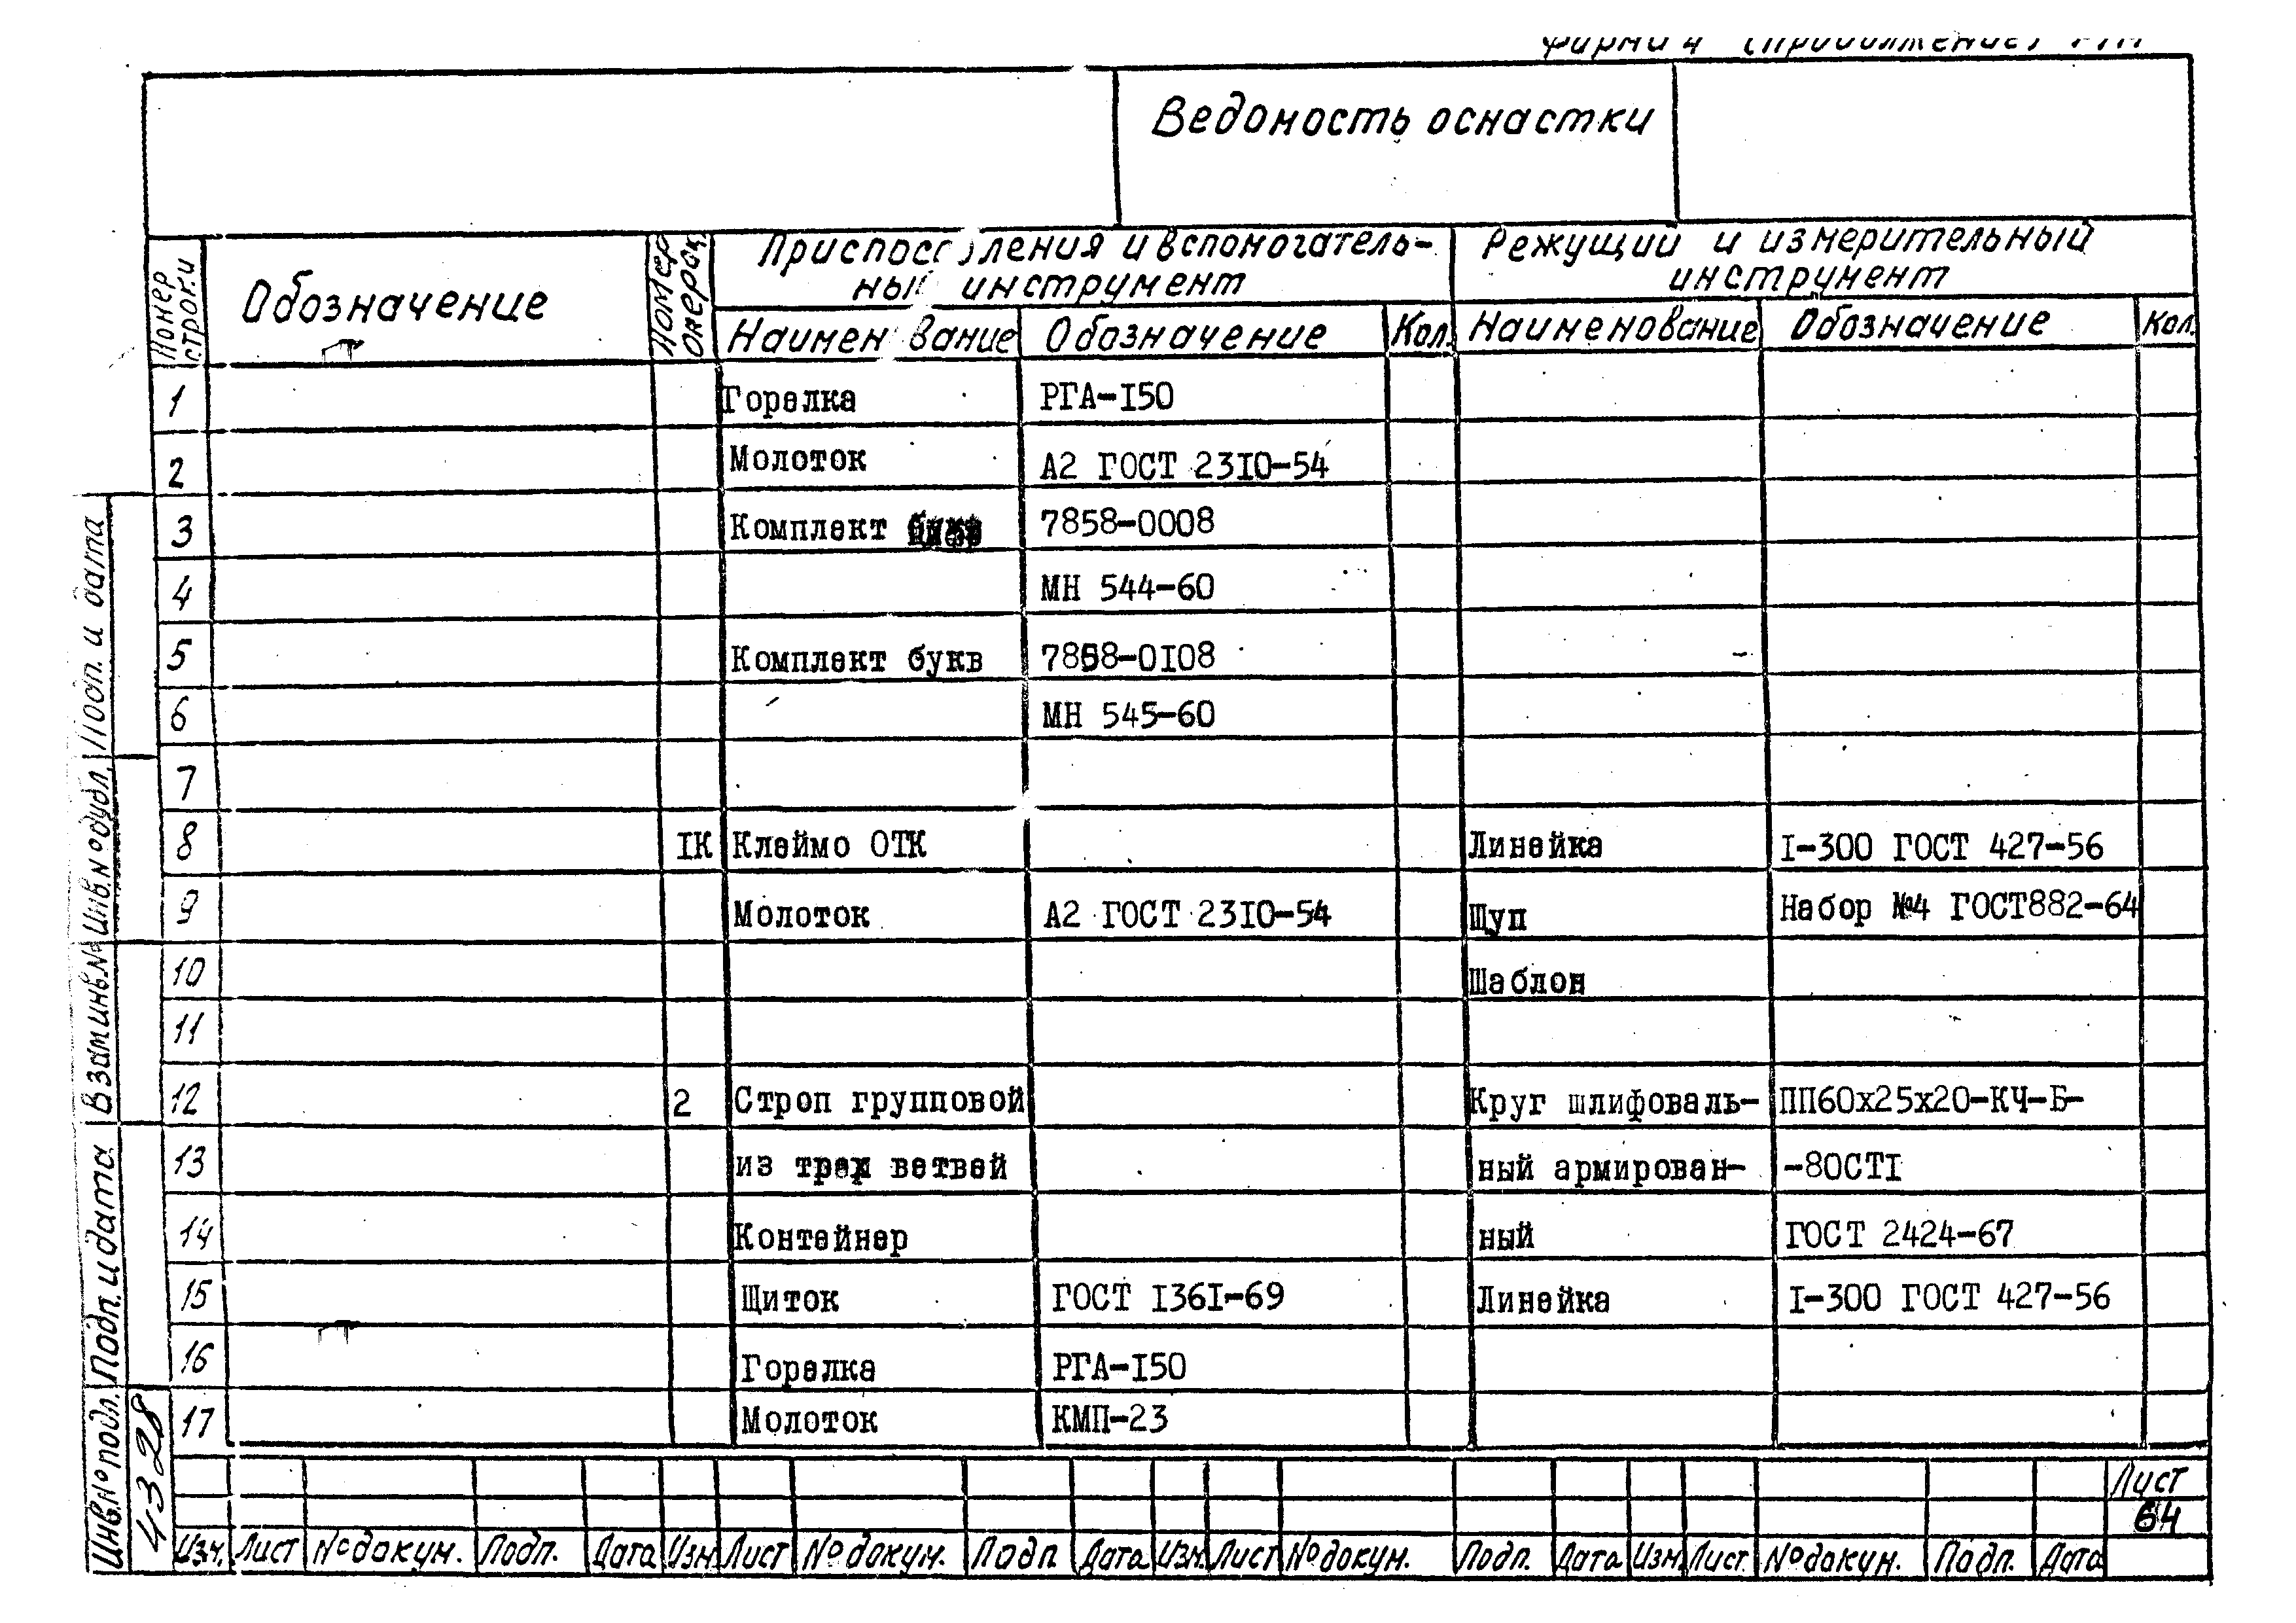 Ведомость оснастки
Номер строки
Обозначение
Номер операц.
Приспособления и вспомогатель-
ный инструмент
Режущий и измерительный
инструмент
Наименование Обозначение Кол. Наименование Обозначение Кол.
1 Горелка РГА-I50
2 Молоток А2 ГОСТ 23I0-54
3 Комплект 7858-0008
4 МН 544-60
5 Комплект букв 7858-0I08
6 МН 545-60
7
8 IК Клеймо ОТК Линейка I-300 ГОСТ 427-56
9 Молоток А2 ГОСТ 23I0-54 Щуп Набор №4 ГОСТ882-64
10 Шаблон
11
12 2 Строп групповой Круг шлифоваль- ПП60х25х20-КЧ-Б-
13 из трех ветвей ный армирован- -80СТI
14 Контейнер ный ГОСТ 2424-67
15 Щиток ГОСТ I36I-69 Линейка I-300 ГОСТ 427-56
16 Горелка РГА-I50
17 Молоток КМП-23
Лист
64
Изм. Лист № докум. Подп. Дата Изм. Лист № докум. Подп. Дата Изм. Лист № докум. Подп. Дата Изм. Лист № докум. Подп. Дата
Подп. и дата
Инв.№ дубл.
Взам.инв.№
Подп. и дата
Инв.№ подл.
4328